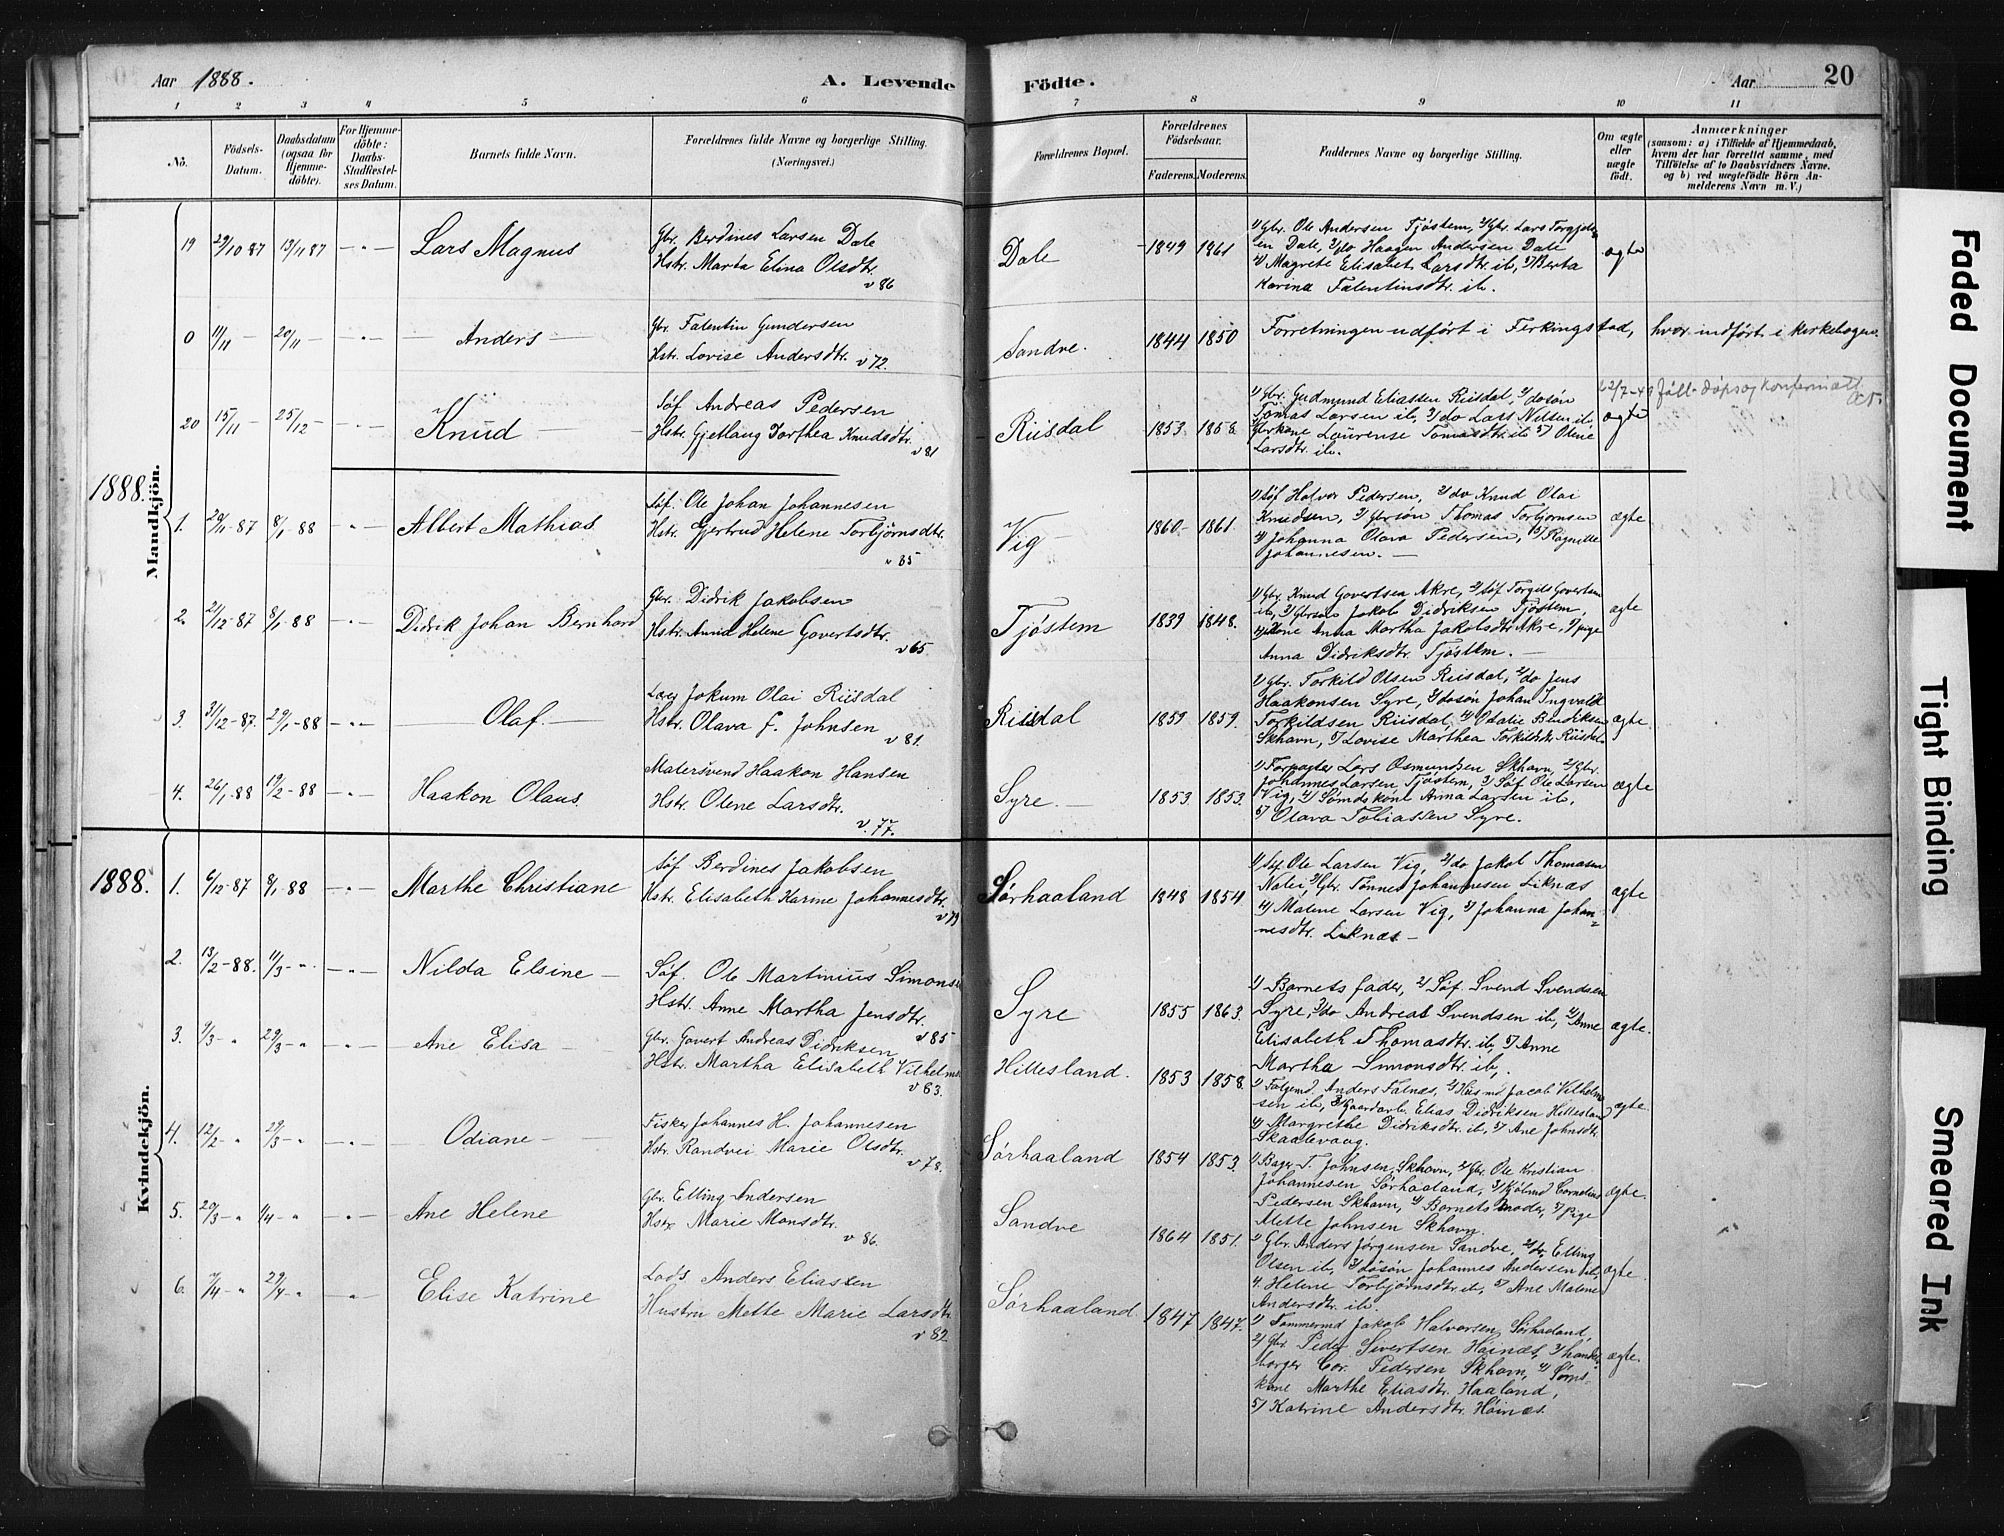 Aar 1888. A. Levende Födte. Aar 20
1 2 3 4 5 6 7 8 9 10 11
No. Födsels-Datum. Daabsdatum (ogsaa for Hjemme-döbte). For Hjemme-döbte: Daabs-Stadfæstel-ses Datum. Barnets fulde Navn. Forældrenes fulde Navne og borgerlige Stilling. (Næringsvei.) Forældrenes Bopæl. Forældrenes Födselsaar. Faderens. Moderens. Faddernes Navne og borgerlige Stilling. Om ægte eller uægte födt. Anmærkninger
(saasom: a) i Tilfælde af Hjemmedaab,
hvem der har forrettet samme, med
Tilföielse af to Daabsvidners Navne,
og b) ved uægtefödte Börn An-
melderens Navn m. V.)
Mandkjön.
19 29/10 87 13/11 87 Lars Magnus
Gbr. Berdines Larsen Dale
Hstr. Marta Elina Olsdtr.
v 86
Dale 1849 1861
1) Gbr. Ole Andersen Tjöstem, 2) Gbr. Lars Torgjels-
en Dale, 3) do Haagen Andersen Dale
4) Magrete Elisabet Larsdtr. ib, 5) Berta
Karina Falentinsdtr. ib.
ægte
0 11/11 20/11 Anders
Gbr. Falentin Gundersen
Hstr. Lovise Andersdtr. v 72.
Sandve. 1844 1850
Forretningen udfört i Ferkingstad, hvor indfört i kirkebogen.
20 15/11 25/12 Knud
Söf Andreas Pedersen
Hstr. Gjetlaug Dorthea Knudsdtr.
v 81
Riisdal 1853 1858
1) Gbr. Gudmund Eliassen Riisdal, 2) dosön
Tomas Larsen ib, 3) do Lars Nilsen ib,
Gbrkone Laurense Tomasdtr. ib 5) Olene
Larsdtr. ib.
ægte
1888.
1. 87 8/1-88 Albert Mathias
Söf. Ole Johan Johannesen
Hstr. Gjertrud Helene Torbjörnsdtr.
v 85
Vig 1860 1861
1) Söf Halvor Pedersen, 2) do Knud Olai
Knudsen, 3) Gbrsön Thomas Torbjörnsen
4) Johanna Olava Pedersen, 5)
Johannesen.
ægte
2. 21/12-87 8/1-88 Didrik Johan Bernhard
Gbr. Didrik Jakobsen
Hstr. Anna Helene Govertsdtr.
v 65.
Tjöstem 1839 1848.
1) Gbr. Knud Govertsen Akre, 2) Söf Torgils Govertsen
ib, 3) Gbrsön Jakob Didriksen Tjöstem,
4) Kone Anna Martha Jakobsdtr Akre, 5) pige
Anna Didriksdtr. Tjöstem.
ægte
3. 31/12-87. 29/1-88 Olaf.
Jokum Olai Riisdal
Hstr. Olava F. Johnsen
v 81.
Riisdal 1859 1859.
1) Gbr. Torkild Olsen Riisdal, 2) do Jens
Haakonsen Syre, 3) dosön Johan Ingvald
Torkildsen Riisdal, 4) Odalie Bendiksen
Skhavn, 5) Lovise Marthea Torkildsdtr Riisdal
ægte
4. 26/1-88 19/2-88 Haakon Olaus.
Malersvend Haakon Hansen
Hstr. Olene Larsdtr.
v. 77.
Syre. 1853 1853.
1) Forpagter Lars Osmundsen Skhavn, 2) Gbr.
Johannes Larsen Tjöstem, 3) Söf Ole Larsen
Vig, 4) Sömdskone Anna Larsen ib,
5) Olava Tobiassen Syre.
ægte
1888. Kvindekjön.
1. 6/12-87 8/1-88 Marthe Christiane
Söf Berdines Jakobsen
Hstr. Elisabeth Karine Johannesdtr.
v 79
Sörhaaland 1848 1854
1) Söf Ole Larsen Vig, 2) do Jakob Thomasen
3) Gbr. Tönnes Johannesen Liknæs
4) Malene Larsen Vig, 5) Johanna Johan-
nesdtr. Liknæs
ægte
2. 13/2-88. 11/3 Nilda Elsine
Söf. Ole Martinius Simons
Hstr. Anne Martha Jensdtr.
v 85
Syre 1855 1863.
1) Barnets fader, 2) Söf. Svend Svendsen
Syre, 3) do Andreas Svendsen ib, 4) Anne
Elisabeth Thomasdtr. ib, 5) Anne
Martha Simonsdtr. ib,
ægte.
3. 9/3 29/3 Ane Elisa
Gbr. Govert Andreas Didriksen
Hstr. Martha Elisabeth Vilhelm
v 83.
Hillesland. 1853 1858.
1) Anders Falnæs, 2) Husmd Jacob Vilhelm-
sen ib, 3) Gaardarb. Elias Didriksen Hillesland
4) Margrethe Didriksdtr. ib, 5) Ane Johnsdtr.
Skaalevaag.
ægte
4. 12/2 29/3 Odiane
Fisker Johannes H. Johannesen
Hstr. Randvei Marie Olsdtr.
v 78.
Sörhaaland 1854 1853.
1) Bager T. Johnsen, Skhavn, 2) Gbr. Ole Kristian
Johannesen Sörhaaland, 3) Kjölmd Cornelius
Pedersen Skhavn, 4) Barnets moder, 5) Pige
Mette Johnsen Skhavn.
ægte.
5. 20/3 1/4 Ane Helene
Gbr. Elling Andersen
Hstr Marie Monsdtr.
v 86.
Sandve 1864 1851.
1) Gbr. Anders Jörgensen Sandve, 2) do, Elling
Olsen ib, 3) dosön Johannes Andersen ib,
4. Helene Torbjörnsdtr ib, 5) Ane Malene
Andersdtr. ib.
ægte.
6. 7/4 29/4 Elise Katrine
Lods. Anders Eliassen
Hustru Mette Marie Larsdtr
v 82.
Sörhaaland 1847 1847.
1) Tömmermd Jakob Halvorsen Sörhaaland,
2) Gbr. Peder Sivertsen Höinæs, 3) hands-
borger Cor. Pedersen Skhavn, 4) Söms-
kone Marthe Eliasdtr. Haaland,
5) Katrine Andersdtr. Höinæs.
ægte.
Faded Document
Tight Binding
Smeared Ink